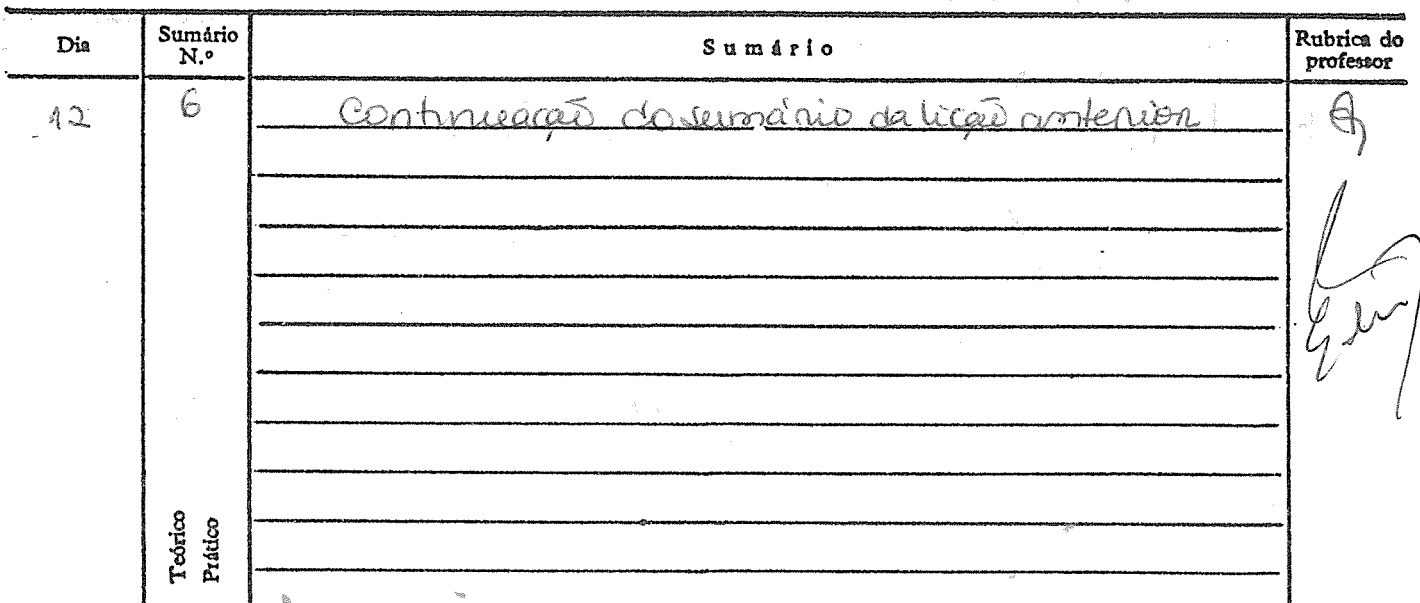 Dia
Sumário
N.º
Sumário
Rubrica do
professor
12
6
Continuação do sumário da lição anterior
Teórico
Prático